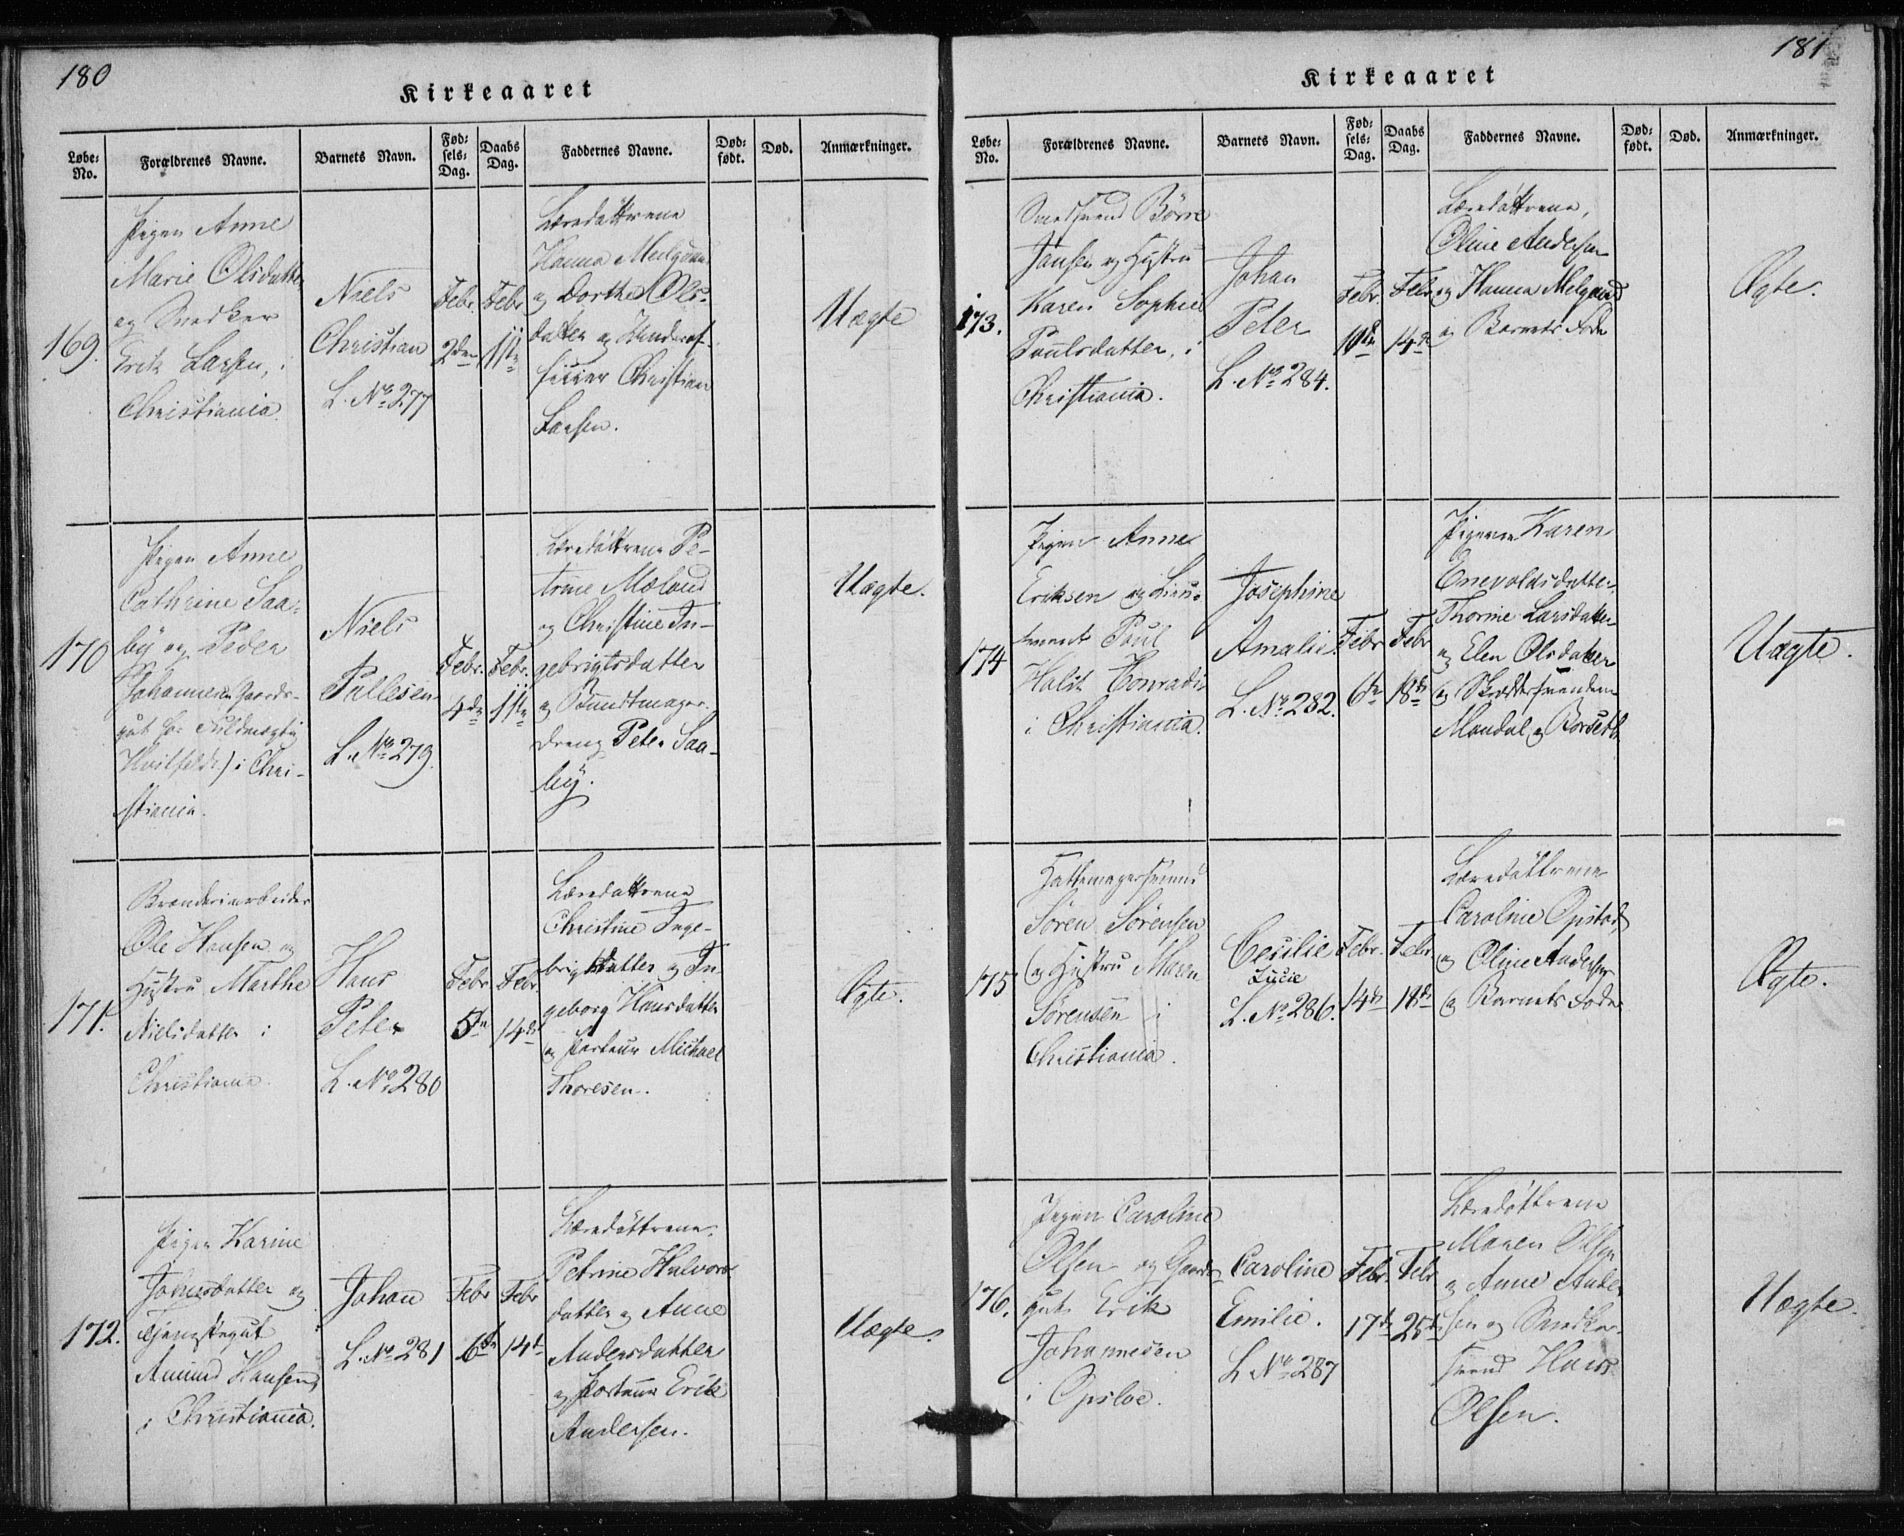 180
Kirkeaaret
Løbe-No.
Forældrenes Navne.
Barnets Navn.
Fødsels-Dag.
Daabs Dag.
Faddernes Navne.
Død-født.
Død.
Anmærkninger.
169.
Pigen Anne
Marie Olsdatter
og Snedker
Erik Larsen, i
Christiania
Niels
Christian
L. No 277
Febr.
2den
Febr.
11te
Læredøttrene
Hanna
og Dorthe Ols-
datter og Underof-
ficier Christian
Larsen.
Uægte
170
Pigen Anne
Cathrine Saa-
by og Peder
Johannesen Gaards-
gut hos Fuldmægtig
Hvitfeldt) i Chri-
stiania.
Niels
Pallesen
L. No 279.
Febr.
4de
Febr.
11te
Læredøttrene Pe-
trine Mæland
og Christine In-
gebrigtsdatter
og Bundtmager-
dreng Peter Saa-
by.
Uægte.
171.
Brænderiarbeider
Ole Hansen og
Hustru Marthe
Nielsdatter i
Christiania.
Hans
Peter
L. No 280
Febr.
5te
Febr.
14de
Læredøttrene
Christine Inge-
brigtsdatter og In-
geborg Hansdatter
og Porteur Michael
Thoresen.
Ægte.
172.
Pigen Karine
Johnsdatter og
Tjenestegut
Amund Hansen,
i Christiania.
Johan
L. No 281
Febr
6te
Febr
14de
Læredøttrene
Petrine Halvors-
datter og Anne
Andersdatter
og Porteur Erik
Andersen.
Uægte.
181
Kirkeaaret
Løbe-No.
Forældrenes Navne.
Barnets Navn.
Fødsels-Dag.
Daabs Dag.
Faddernes Navne.
Død-født.
Død.
Anmærkninger.
173.
Smedsvend Börre
Jansen og Hustru
Karen Sophie
Poulsdatter, i
Christiania.
Johan
Peter
L. No 284.
Febr.
10de
Febr.
14de
Læredöttrene,
Oline Andersen
og Hanna Melgaard
og Barnets Fader
Ægte.
174
Pigen Anne
Eriksen og Lieu-
tenant Poul
Holst Conradi
i Christiania.
Josephine
Amalie
L. No 282.
Febr
6te
Febr
18de
Pigerne Karen
Enevoldsdatter,
Thorine Larsdatter
og Elen Olsdatter
og Skræddersvendene
Mandal og Borseth
Uægte.
175
Hattemagersvend
Sören Sörensen
og Hustru Maren
Sörensen i
Christiania.
Cecilie
Lucie
L. No 286.
Febr.
14de
Febr.
18de
Læredöttrene
Caroline Opstad,
og Oline Andersen
og Barnets Fader
Ægte.
176.
Pigen Caroline
Olsen og Gaards-
gut Erik
Johannesen
i Opsloe.
Caroline
Emilie.
L No 287
Febr.
17de
Febr
25de
Læredöttrene
Maren Olsen
og Anne Ander-
sen og Snedker-
svend Hans
Olsen.
Uægte.